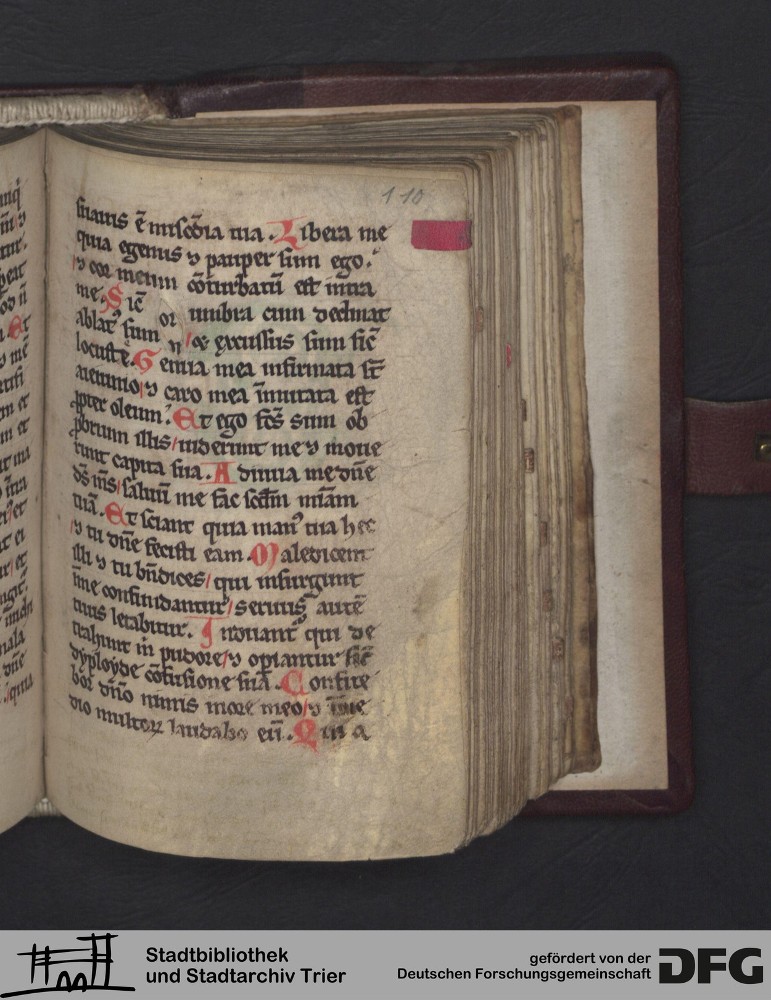 110
suauis ē misćdia tua . Libera me
quia egenus ⁊ pauper sum ego .
⁊ cor meum cōturbatū est intra
me . Sic̄ umbra cum declinat
ablatꝰ sum / ⁊ excussus sum sic̄
locuste . Genua mea infirmata st̄
a ieiunio / ⁊ caro mea īmutata est
ꝓpter oleum . Et ego fc̄s sum ob
ꝓbrium illis / uiderunt me ⁊ moue
runt capita sua . Adiuua me dn̄e
ds̄ ms̄ / saluū me fac scd̄m mīam
tuā . Et sciant quia manꝰ tua hec
/ ⁊ tu dn̄e fecisti eam . Maledicent
illi ⁊ tu bn̄dices / qui insurgunt
ī me confundantur / seruus autē
tuus letabitur . Induant qui de
trahunt m̄ pudore / ⁊ opiantur sic̄
dyployde cōfusione suā . Confite
bor dn̄o nimis in ore meo / ⁊ ī me
dio multoꝝ laudabo eū . Quia a
Stadtbibliothek
und Stadtarchiv Trier
gefördert von der
Deutschen Forschungsgemeinschaft
DFG